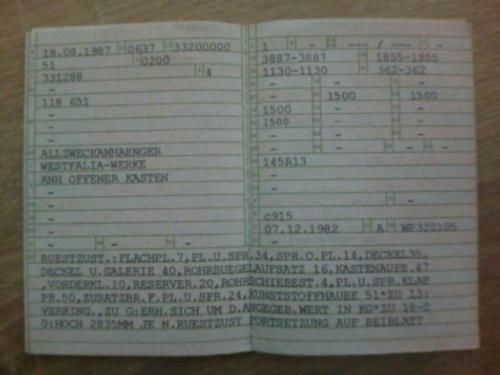 18.08.1987 0637 33200000
51 0200
331288 4
-
118 651
-
-
-
ALLZWECKANHAENGER
WESTFALIA-WERKE
ANH OFFENER KASTEN
-
-
-
-
- -
1 - --- / --- -
3887-3887 1855-1855
1130-1130 362-362
- - -
- 1500 1500
1500 - -
1500 - -
- - -
-
145R13
-
-
- -
-
c915
07.12.1982 A WP320105
RUESTZUST.:FLACHPL.7,PL.U.SPR.34,SPR.O.PL.14,DECKEL35,
DECKEL U.GALERIE 40,ROHRBUEGELAUFSATZ 16,KASTENAUFS.47
,VORDERKL.10,RESERVER.20,ROHRSCHIEBEST.4,PL.U.SPR.KLAP
PB.50,ZUSATZBR.F.PL.U.SPR.24,KUNSTSTOFFHAUBE 51*ZU 13:
VERRING.,ZU G:ERH.SICH UM D.ANGEGEB.WERT IN KG*ZU 18-2
0:HOCH 2835MM JE N.RUESTZUST FORTSETZUNG AUF BEIBLATT